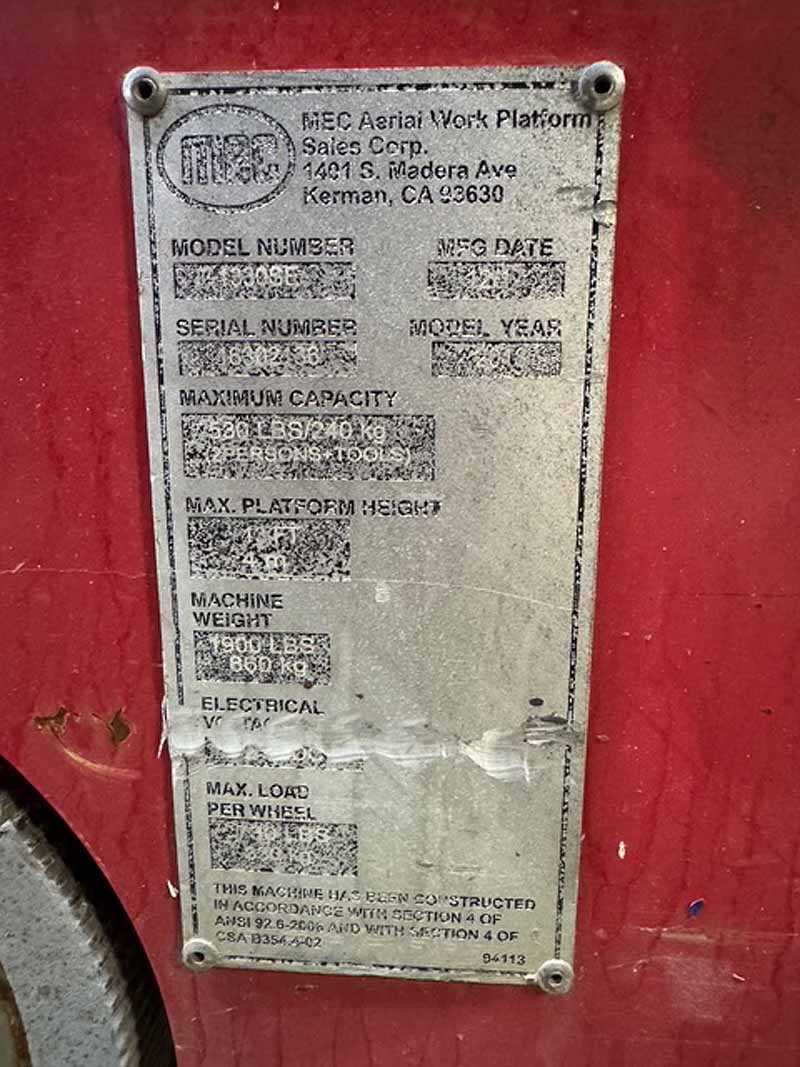 MEC
MEC Aerial Work Platform
Sales Corp.
1401 S. Madera Ave
Kerman, CA 93630
MODEL NUMBER
MFG DATE
SERIAL NUMBER
MODEL YEAR
MAXIMUM CAPACITY
530 LBS/240 kg
(2PERSONS+TOOLS)
MAX. PLATFORM HEIGHT
FT
4 m
MACHINE
WEIGHT
1900 LBS
860 kg
ELECTRICAL
MAX. LOAD
PER WHEEL
LBS
THIS MACHINE HAS BEEN CONSTRUCTED
IN ACCORDANCE WITH SECTION 4 OF
ANSI 92.6-2006 AND WITH SECTION 4 OF
CSA B354.4-02
94113